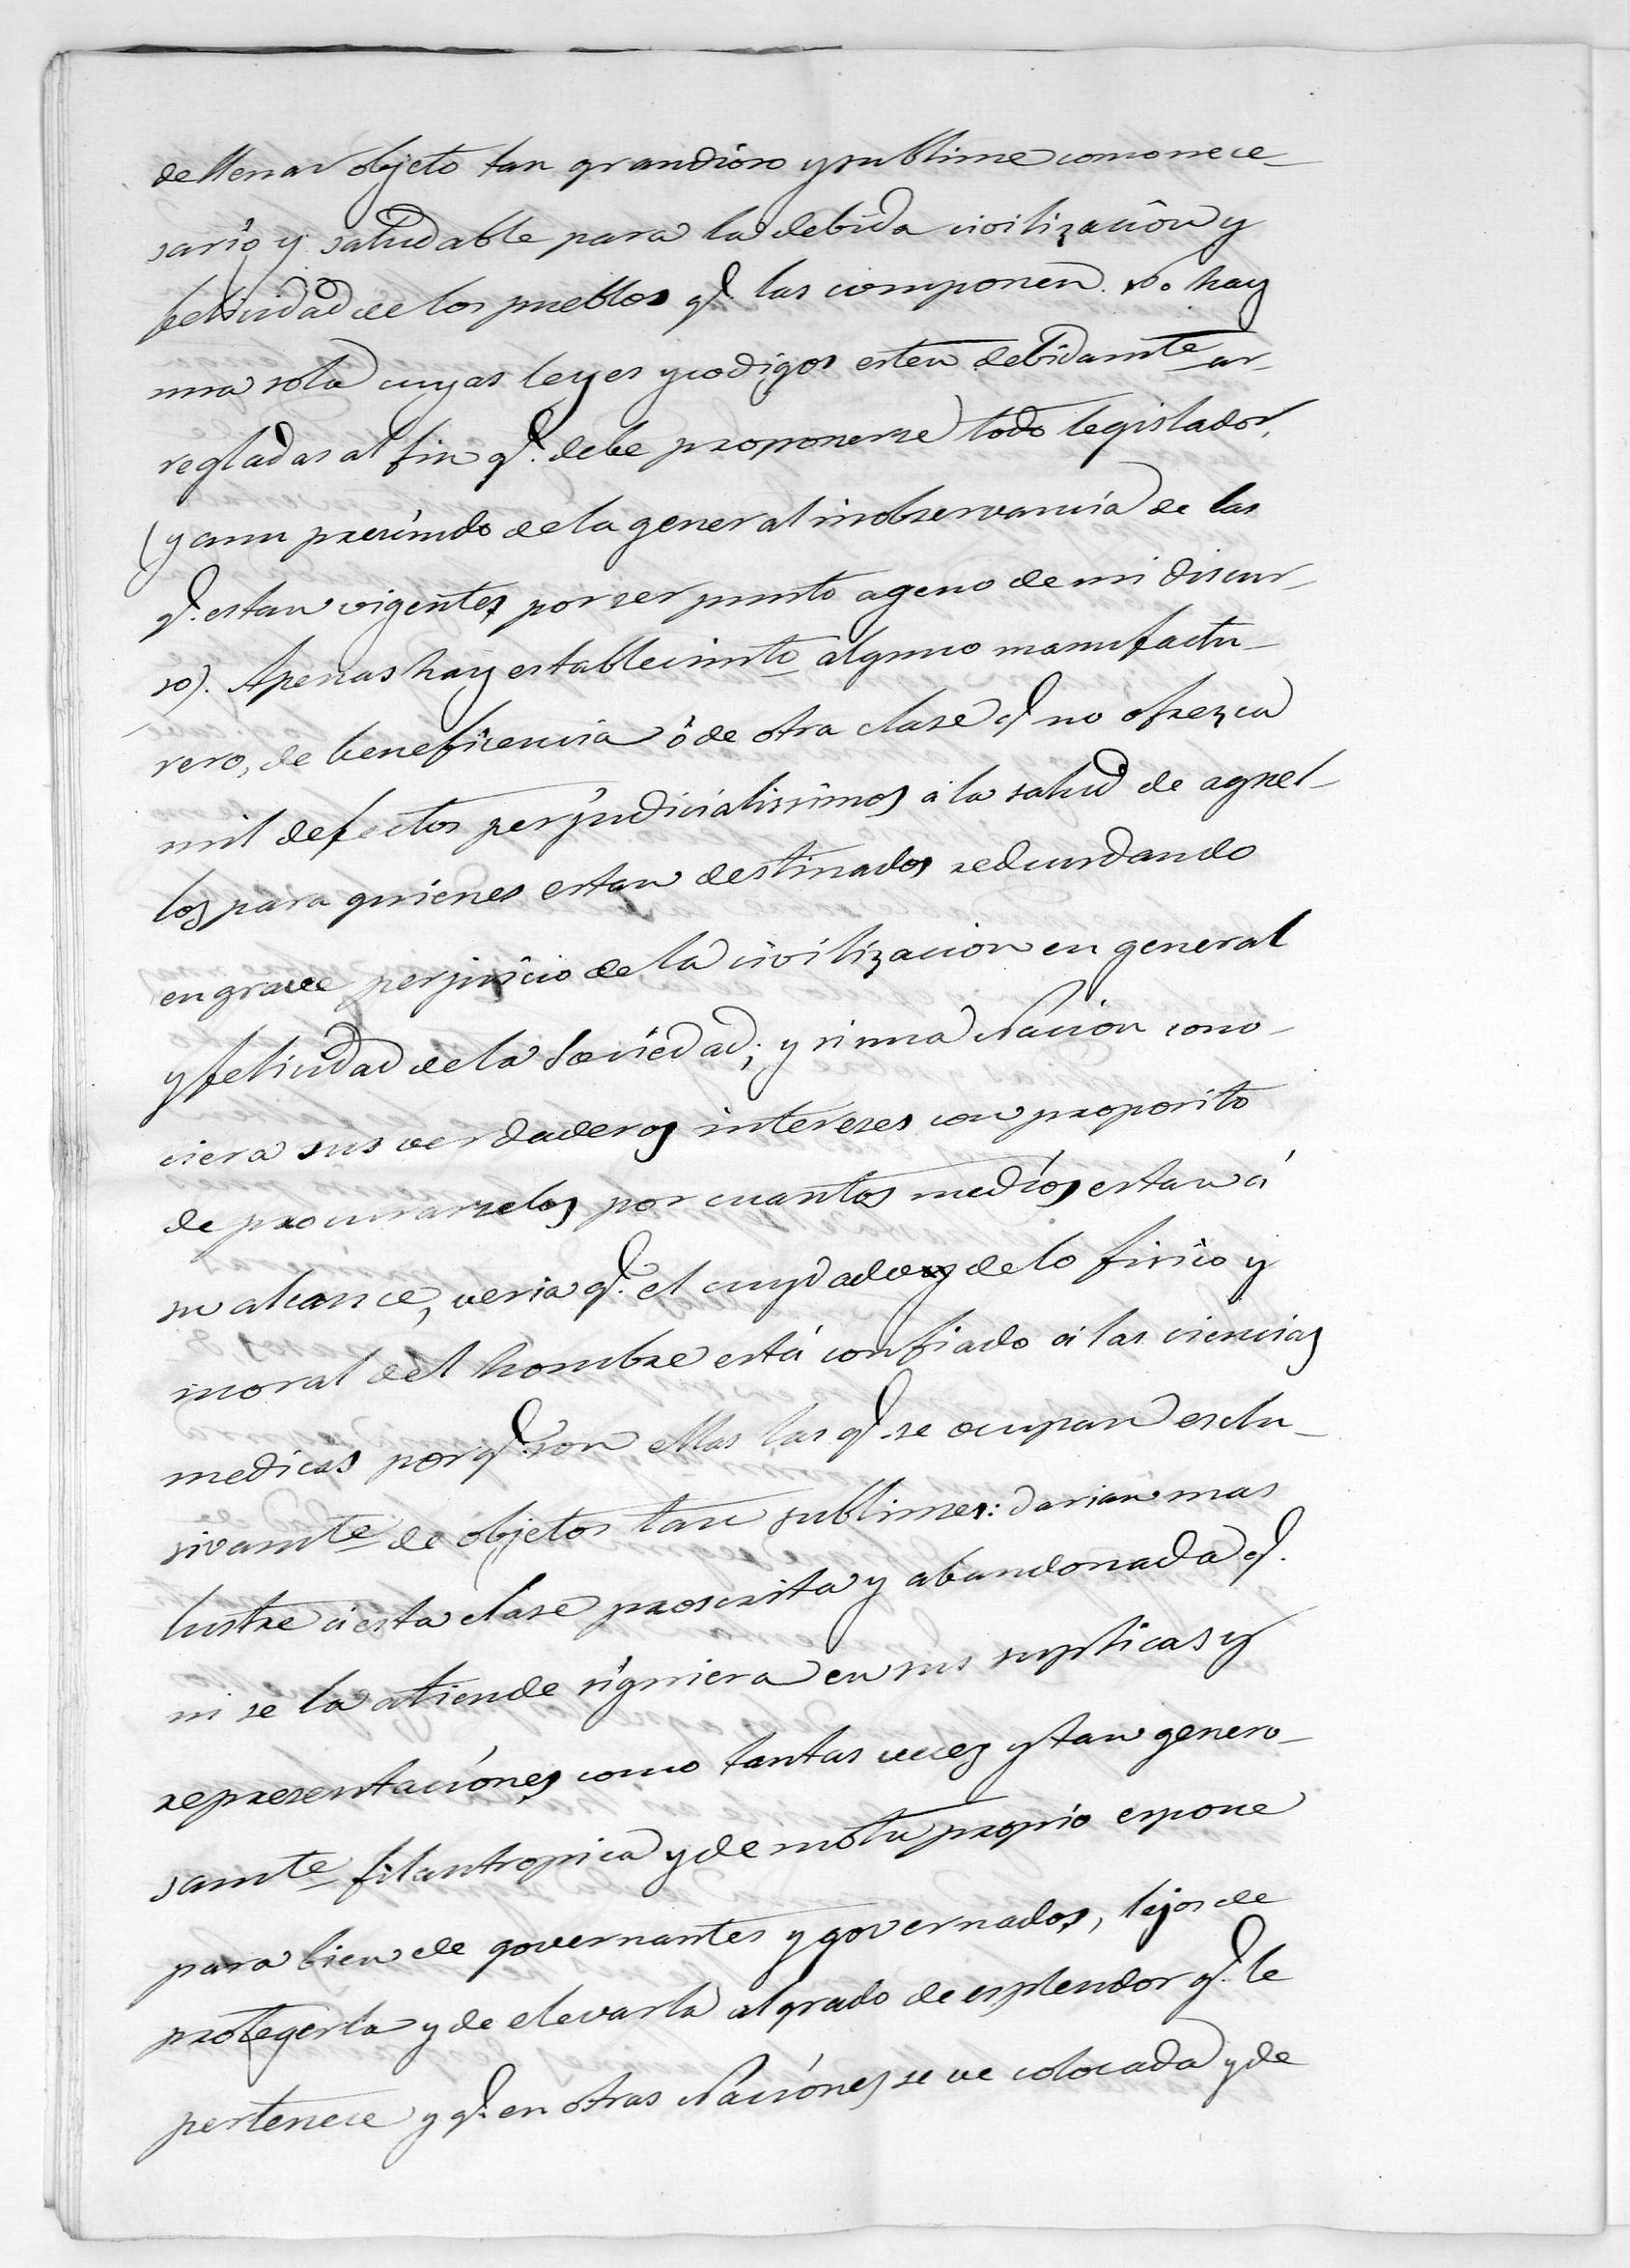 de llenar objeto tan grandioso y sublime como nece-
sario y saludable para la debida civilización y
felicidad de los pueblos q.e las componen. No hay
una sola cuyas leyes y codigos esten debidamte ar-
regladas al fin q.e debe proponerse todo legislador,
(y aun prescindo de la general inobservancia de las
q.e estan vigentes por ser punto ageno de mi discur-
so). Apenas hay establecimto alguno manufactu-
rero, de beneficencia ó de otra clase q.e no ofrezca
mil defectos perjudicialissimos á la salud de aquel-
los para quienes estan destinados redundando
en grave perjuicio de la civilizacion en general
y felicidad de la Sociedad; y si una Nacion cono-
ciera sus verdaderos intereses con proposito
de procurarselos por cuantos medios estan á
su alcance, veria q.e el cuydado de lo fisico y
moral del hombre está confiado á las ciencias
medicas porq.e son ellas las q.e se ocupan esclu-
sivamte de objetos tan sublimes: darian mas
lustre á esta clase proscrita y abandonada q.e
ni se la atiende siquiera en sus suplicas y
representaciónes como tantas veces y tan genero-
samte filantropica y de motu proprio espone
para bien de governantes y governados, lejos de
protegerla y de elevarla al grado de esplendor q.e le
pertenece y q.e en otras Naciónes se ve colocada y de